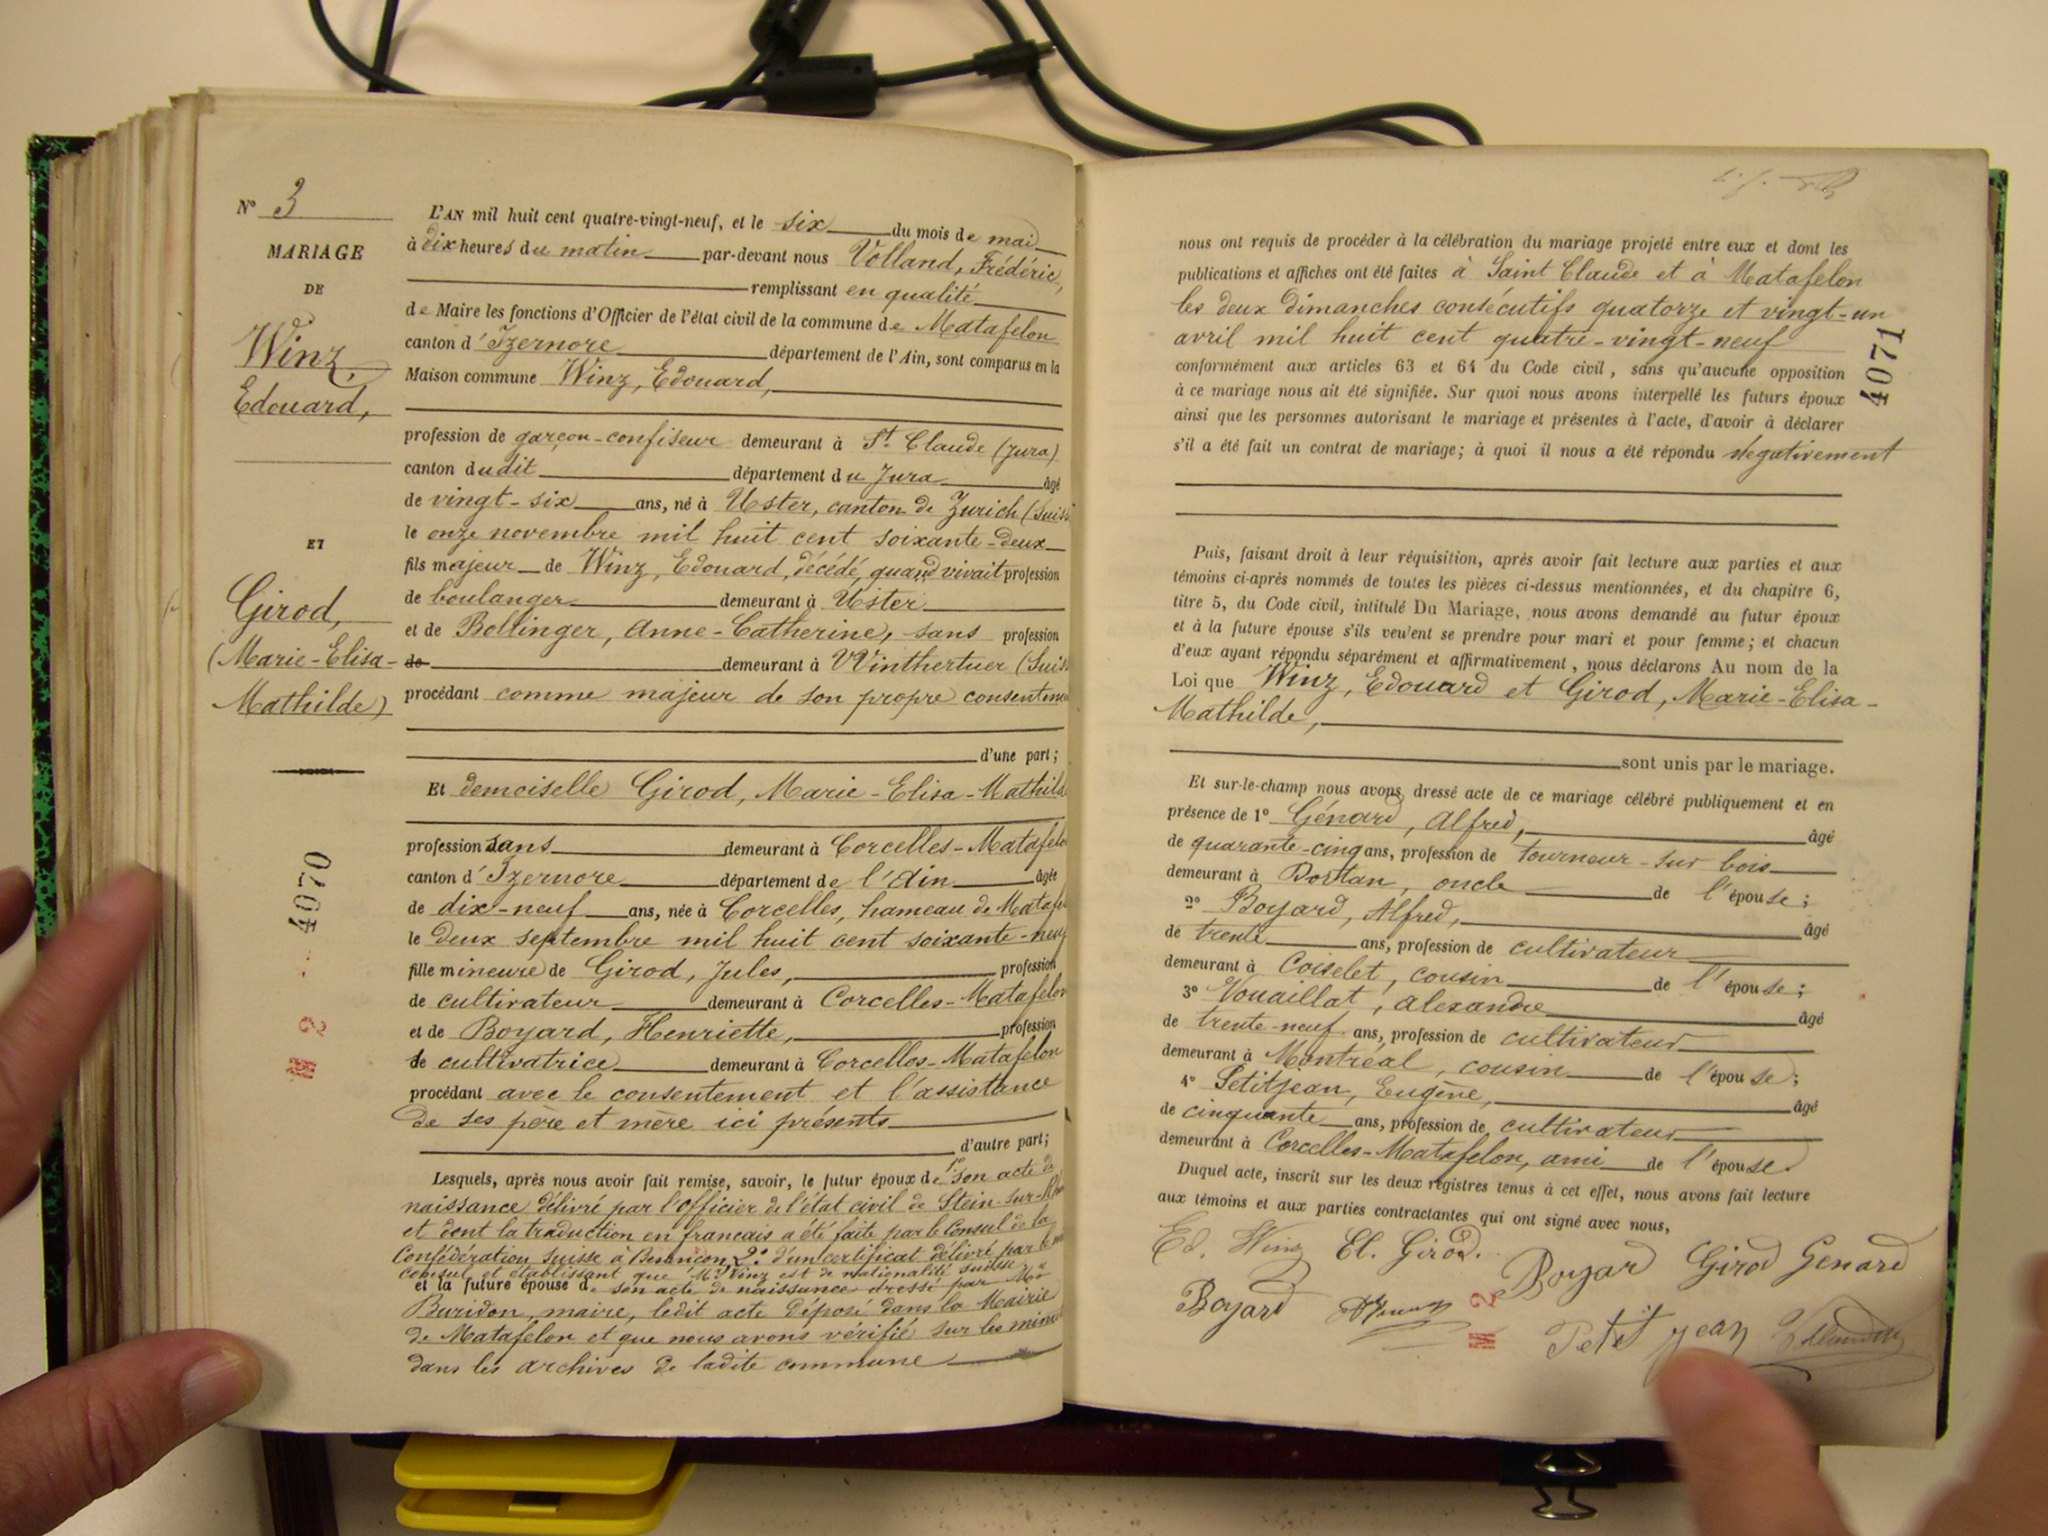 N° 3
MARIAGE
DE
Winz,
Edouard,
ET
Girod,
(Marie-Elisa-
Mathilde)
4070
L'AN mil huit cent quatre-vingt-neuf, et le six du mois de mai
à dix heures du matin par-devant nous Volland, Frédéric,
remplissant en qualité
de Maire les fonctions d'Officier de l'état civil de la commune de Matafelon
canton d'Izernore département de l'Ain, sont comparus en la
Maison commune Winz, Edouard,
profession de garçon-confiseur demeurant à St. Claude (Jura)
canton dudit département du Jura âgé
de vingt-six ans, né à Uster, canton de Zurich (Suiss
le onze novembre mil huit cent soixante-deux
fils majeur de Winz, Edouard, décédé, quand vivait profession
de boulanger demeurant à Uster
et de Bollinger, Anne-Catherine, sans profession
de demeurant à Winthertuer (Suis
procédant comme majeur de son propre consenteme
d'une part;
Et demoiselle Girod, Marie-Elisa-Mathild
profession sans demeurant à Corcelles-Matafelo
canton d'Izernore département de l'Ain âgée
de dix-neuf ans, née à Corcelles, hameau de Mataf
le deux septembre mil huit cent soixante-neuf
fille mineure de Girod, Jules, profession
de cultivateur demeurant à Corcelles-Matafelon
et de Boyard, Henriette, profession
de cultivatrice demeurant à Corcelles-Matafelon
procédant avec le consentement et l'assistance
de ses père et mère ici présents
d'autre part;
Lesquels, après nous avoir fait remise, savoir, le futur époux de 1° son acte de
naissance délivré par l'officier de l'état civil de Stein-sur-
et dont la traduction en français a été faite par le Consul de la
Confédération suisse à Besançon 2° d'un certificat délivré par le
consul et établissant que Mr Winz est de nationalité suisse
et la future épouse de son acte de naissance dressé par Mr
Buridon, maire, ledit acte déposé dans la Mairie
de Matafelon et que nous avons vérifié sur les minu
dans les archives de ladite commune
nous ont requis de procéder à la célébration du mariage projeté entre eux et dont les
publications et affiches ont été faites à Saint Claude et à Matafelon
les deux dimanches consécutifs quatorze et vingt-un
avril mil huit cent quatre-vingt-neuf
conformément aux articles 63 et 64 du Code civil, sans qu'aucune opposition
à ce mariage nous ait été signifiée. Sur quoi nous avons interpellé les futurs époux
ainsi que les personnes autorisant le mariage et présentes à l'acte, d'avoir à déclarer
s'il a été fait un contrat de mariage; à quoi il nous a été répondu négativement
4071
Puis, faisant droit à leur réquisition, après avoir fait lecture aux parties et aux
témoins ci-après nommés de toutes les pièces ci-dessus mentionnées, et du chapitre 6,
titre 5, du Code civil, intitulé Du Mariage, nous avons demandé au futur époux
et à la future épouse s'ils veulent se prendre pour mari et pour femme; et chacun
d'eux ayant répondu séparément et affirmativement, nous déclarons Au nom de la
Loi que Winz, Edouard et Girod, Marie-Elisa-
Mathilde,
sont unis par le mariage.
Et sur-le-champ nous avons dressé acte de ce mariage célébré publiquement et en
présence de 1° Génard, Alfred, âgé
de quarante-cinq ans, profession de tourneur-sur bois
demeurant à Dortan, oncle de l'épouse;
2° Boyard, Alfred, âgé
de trente ans, profession de cultivateur
demeurant à Coiselet, cousin de l'épouse;
3° Vouaillat, Alexandre âgé
de trente-neuf ans, profession de cultivateur
demeurant à Montréal, cousin de l'épouse;
4° Petitjean, Eugène, âgé
de cinquante ans, profession de cultivateur
demeurant à Corcelles-Matafelon, ami de l'épouse.
Duquel acte, inscrit sur les deux registres tenus à cet effet, nous avons fait lecture
aux témoins et aux parties contractantes qui ont signé avec nous,
Ed. Winz El. Girod. Boyard Girod Genard
Boyard Petitjean